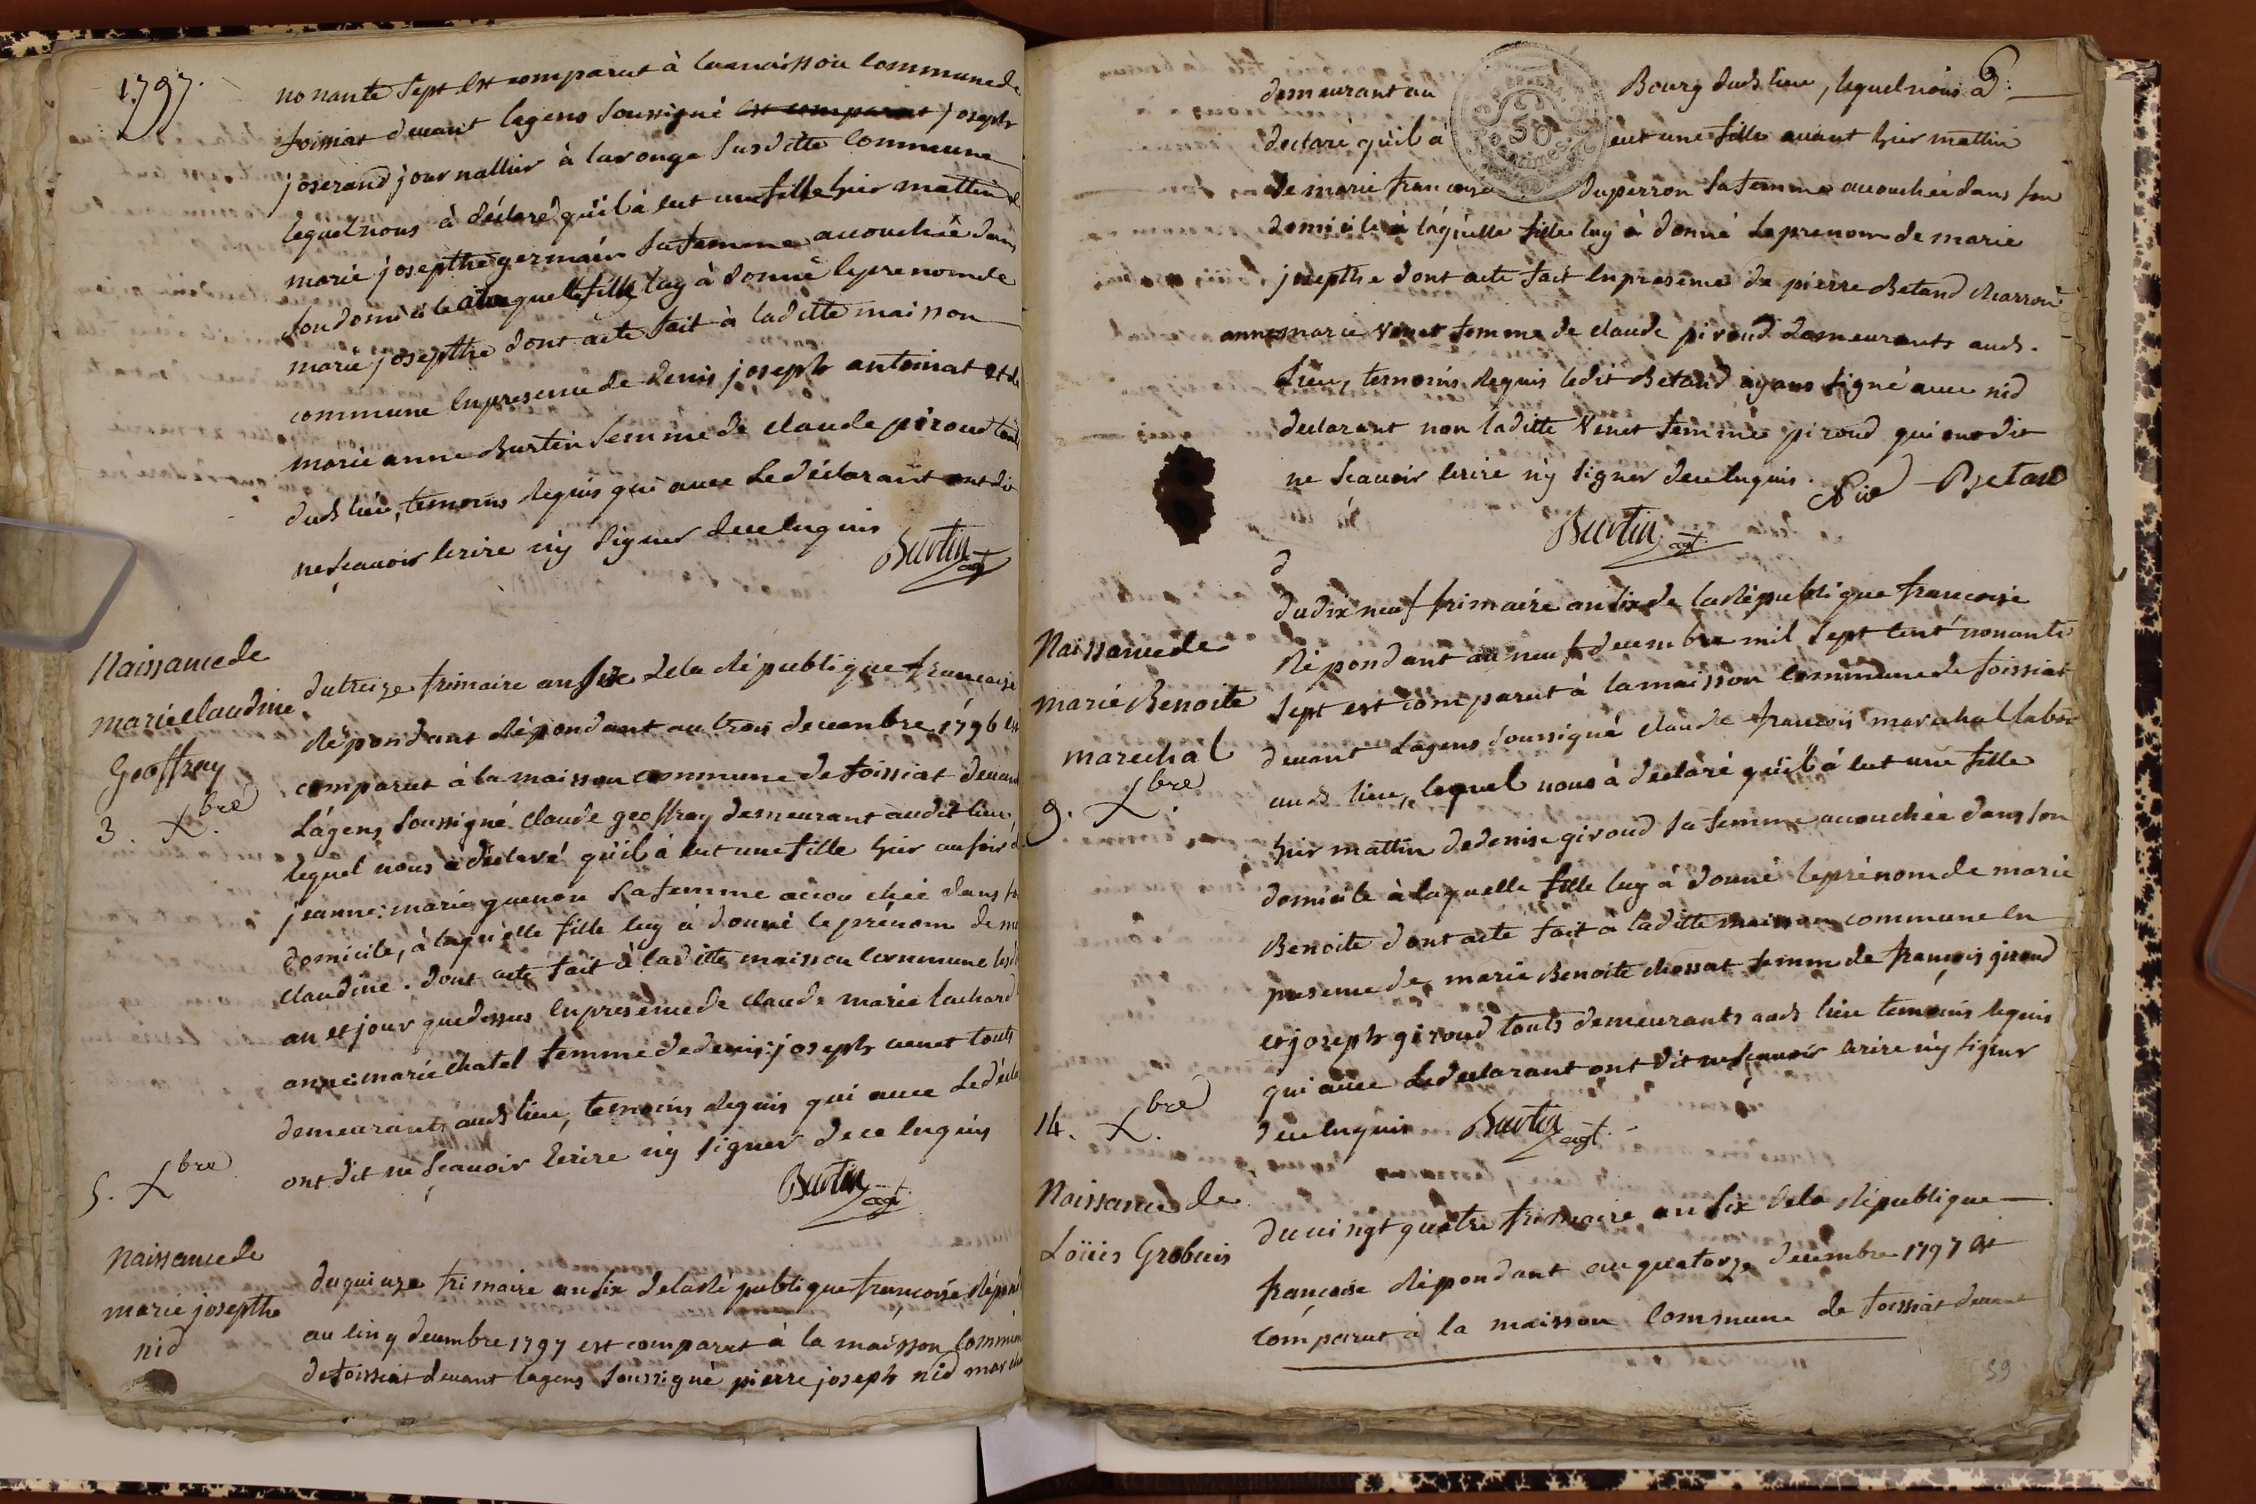 1797.
nonante sept est comparut à lamaisson commune de
foissiat devant lagens soussigné est comparut joseph
joserand journallier à laronge susditte commune
lequel nous à déclaré qu'il à eut une fille hier mattin de
marie josepthe germain sa femme accouchée dans
son domicile a laquelle fille luy à donné le prenom de
marie josepthe dont acte fait à laditte maisson
commune en presence de denis joseph antoinat et de
marie anne Burtin femme de claude piroud touts
dud lieu, temoins requis qui avec le déclarant ont dit
ne scavoir ecrire ny signer de ce enquis
Burtin agt
Naissance de
marie claudine
Geoffray
3. Xbre
du treize frimaire an six de la république francaise
répondant répondant au trois decembre 1796 est
comparut à la maisson commune de foissiat devant
l'agens soussigné claude geoffray demeurant audit lieu,
lequel nous a déclaré qu'il à eut une fille hier au soir de
jeanne: marie guenon sa femme accouchée dans son
domicile, à laquelle fille luy à donné le prénom de marie
claudine. dont acte fait à laditte maisson commune les
an et jour que dessus en presence de claude marie luchard
anne: marie chatel femme de denis: joseph venet touts
demeurants aud lieu, temoins requis qui avec le décla
ont dit ne scavoir ecrire ny signer de ce enquis
Burtin agt
5. Xbre
Naissance de
marie josepthe
nid
du quinze frimaire an six de la république francoise répond
au cinq decembre 1797 est comparut à la maisson commune
de foissiat devant lagens soussigné pierre joseph nid marechal
6.
demeurant au Bourg dud lieu, lequel nous à
declaré qu'il a eut une fille avant hier mattin
de marie francoise duperron sa femme accouchée dans son
domicile à laquelle fille luy à donné le prenom de marie
josepthe dont acte fait en presence de pierre Betand charron
anne marie Venet femme de claude piroud demeurants aud.
lieu, temoins requis ledit Betand ayans signé avec nid
declarant non laditte Venet femme piroud qui ont dit
ne scavoir ecrire ny signer de ce enquis. Nid Betand
Burtin agt
d
Naissance de
marie Benoite
marechal
9. Xbre
du dix neuf frimaire an six de la république francoise
répondant au neuf decembre mil sept cent nonante
sept est comparut à la maisson commune de foissiat
devant lagens soussigné claude francois marechal labou
aud lieu, lequel nous à declaré qu'il à eut une fille
hier mattin de denise giroud sa femme accouchée dans son
domicile à laquelle fille luy à donné le prénom de marie
Benoite dont acte fait a laditte maisson commune en
presence de marie Benoite chossat femme de francois giroud
et joseph giroud touts demeurants aud lieu temoins requis
qui avec le declarant ont dit ne scavoir ecrire ny signer
de ce enquis Burtin agt.
14. Xbre
Naissance de
Loüis Grobuis
du vingt quatre frimaire an six de la république
francoise répondant au quatorze decembre 1797 est
comparut a la maisson commune de foissiat devant
59